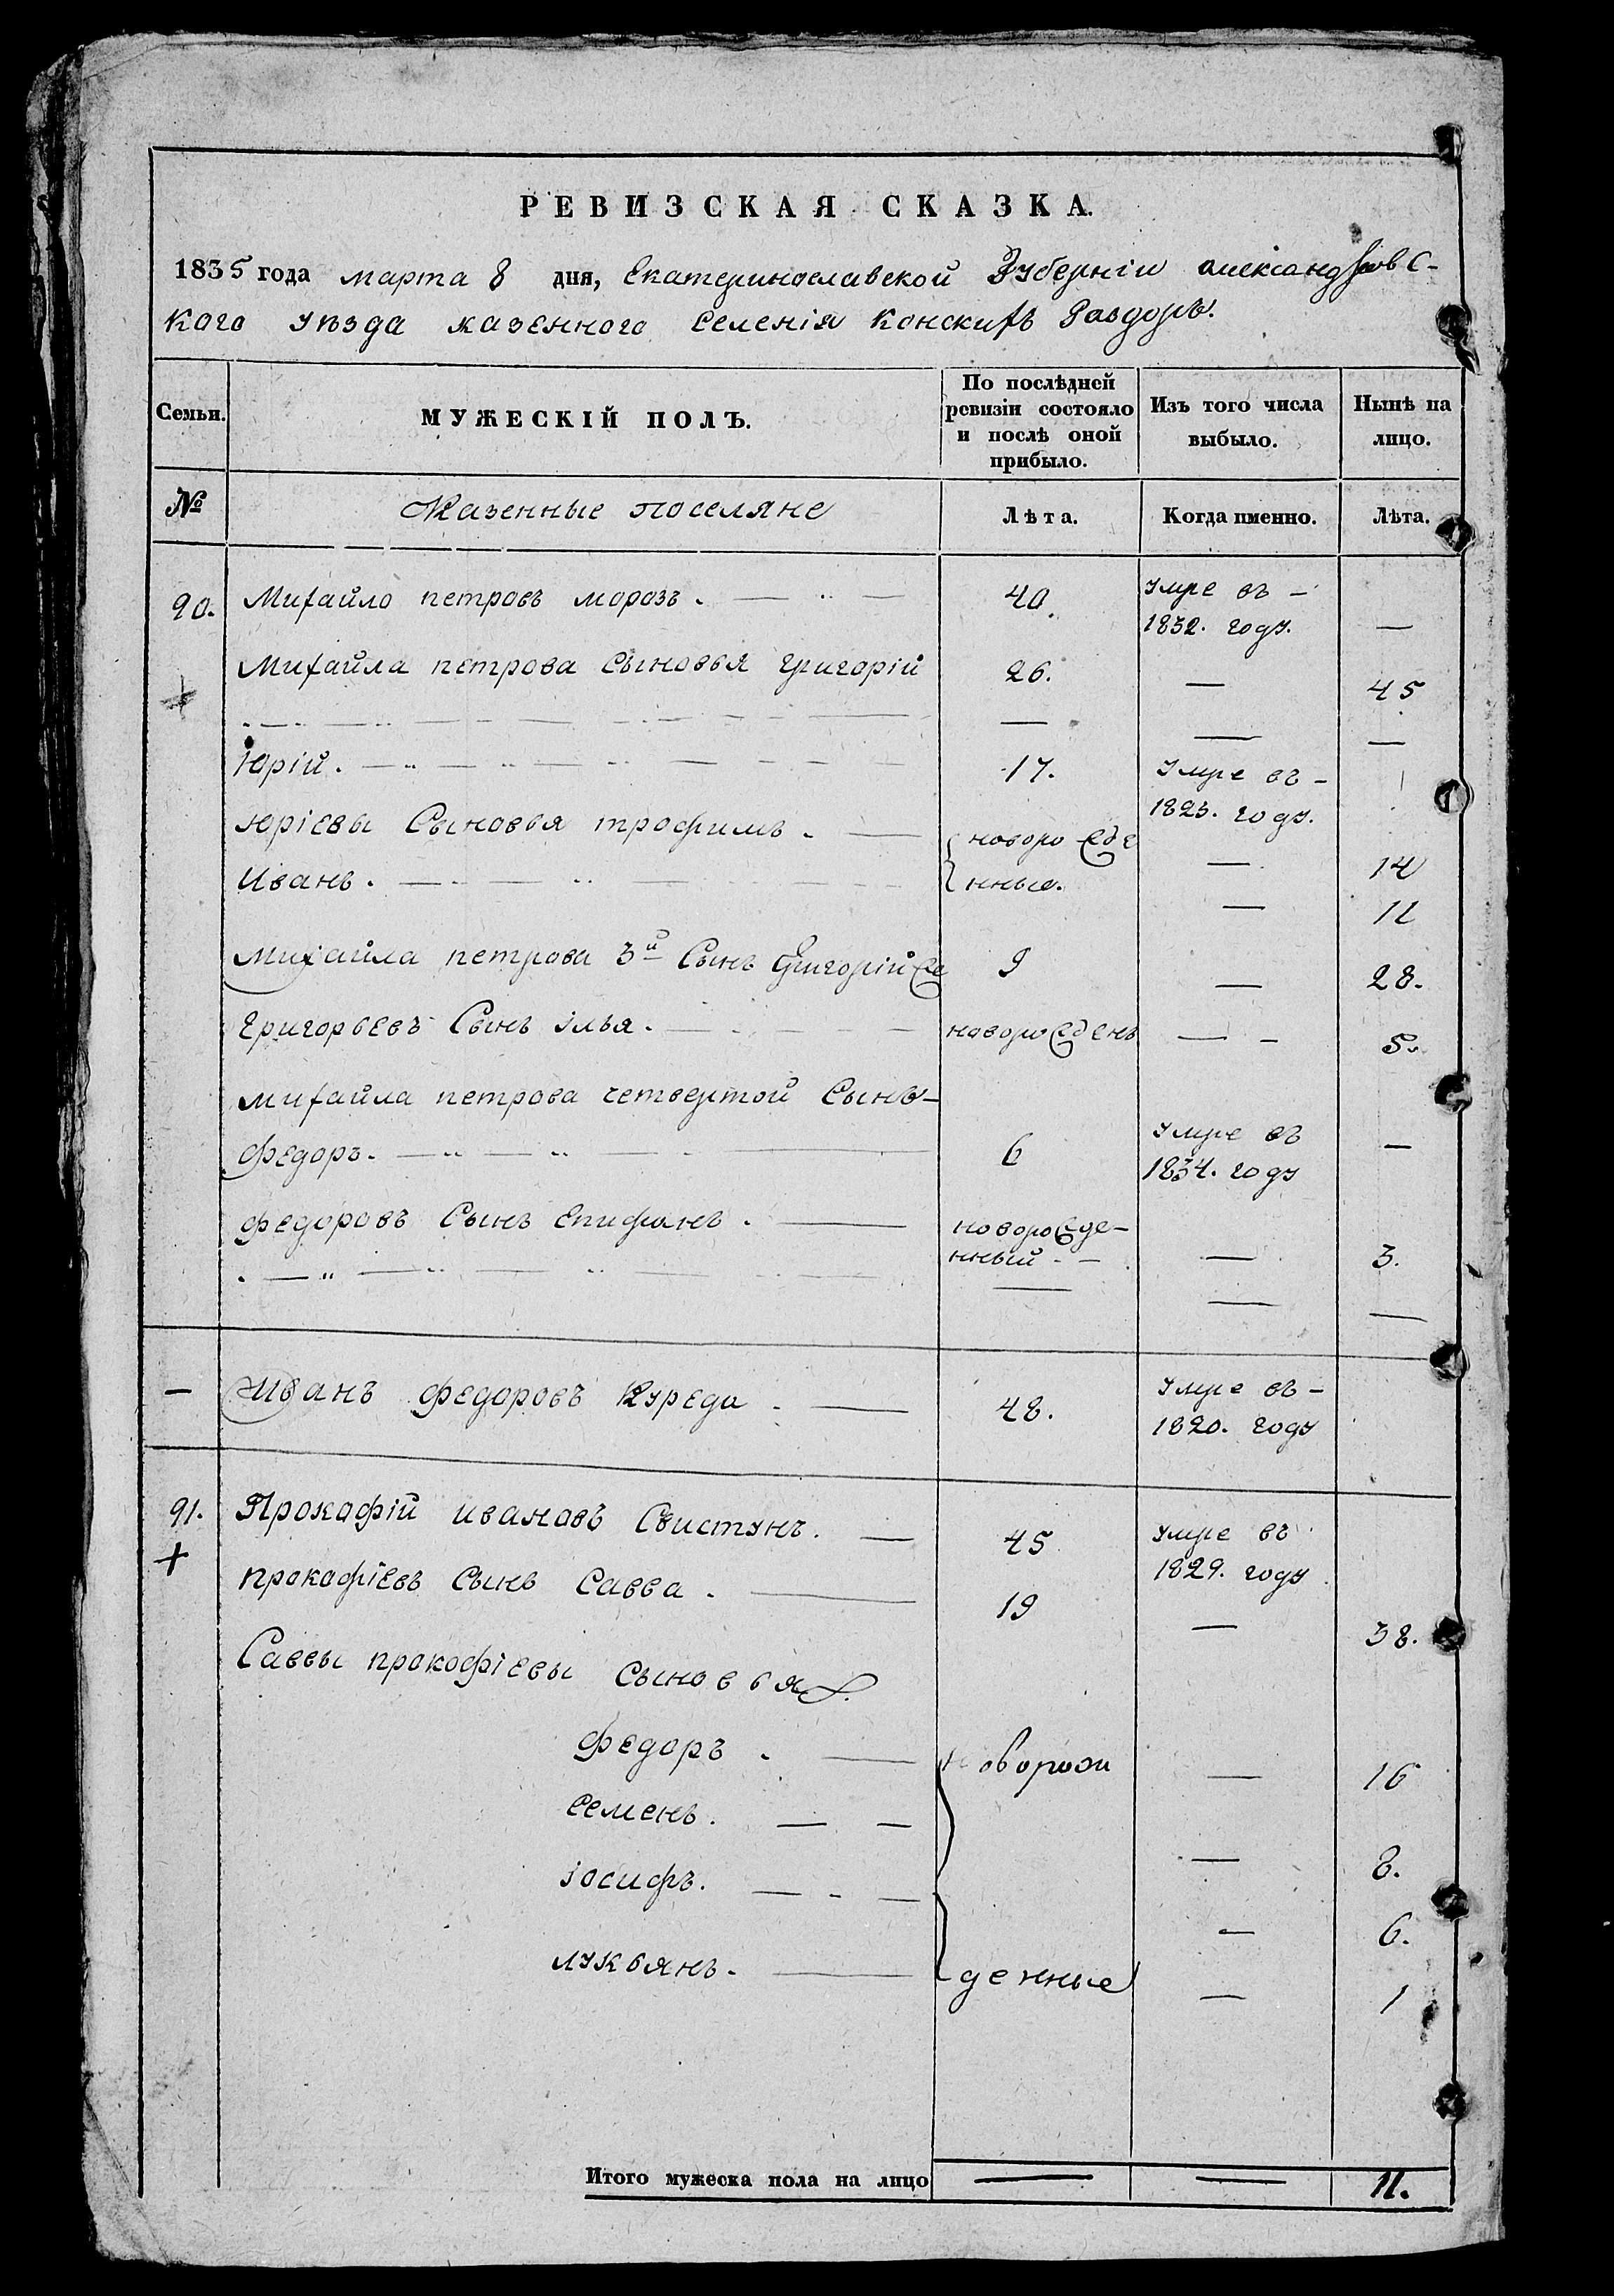 РЕВИЗСКАЯ СКАЗКА.
1835 года марта 8 дня, Екатеринославской Губерніи александровс-
кого уѣзда казенного селенія Конскихъ Раздоръ.
Семьи.
МУЖЕСКІЙ ПОЛЪ.
По послѣдней ревизіи состояло и послѣ оной прибыло.
Изъ того числа выбыло.
Нынѣ на лицо.
№
Казенные поселяне
Лѣта.
Когда именно.
Лѣта.
90. Михайло петровъ морозъ. 40. Умре въ –
1832. году. —
Михайла петрова Сыновья григорій 26. — 45
Юрій. 17. Умре въ –
1823. году.
Юріевы Сыновья трофимъ. новорожде — 14
Иванъ. нные. — 11
Михайла петрова 3й Сынъ Григорій же 9 — 28.
Григорьевъ Сынъ ілья. новорожденъ — 5.
Михайла петрова четвертой Сынъ-
федоръ. 6 Умре въ
1834. году —
федоровъ Сынъ Епифанъ. новорожде-
нный — 3.
— Иванъ федоровъ Куреда 48. Умре въ –
1820. году
91. Прокофій ивановъ Свистунъ. 45 умре въ
1829. году
прокофіевъ Сынъ Савва. 19 — 38.
Саввы прокофіевы Сыновья
федоръ. новорож — 16
семенъ. — 8.
іосифъ. — 6.
лукьянъ. денные — 1
Итого мужеска пола на лицо — — 11.